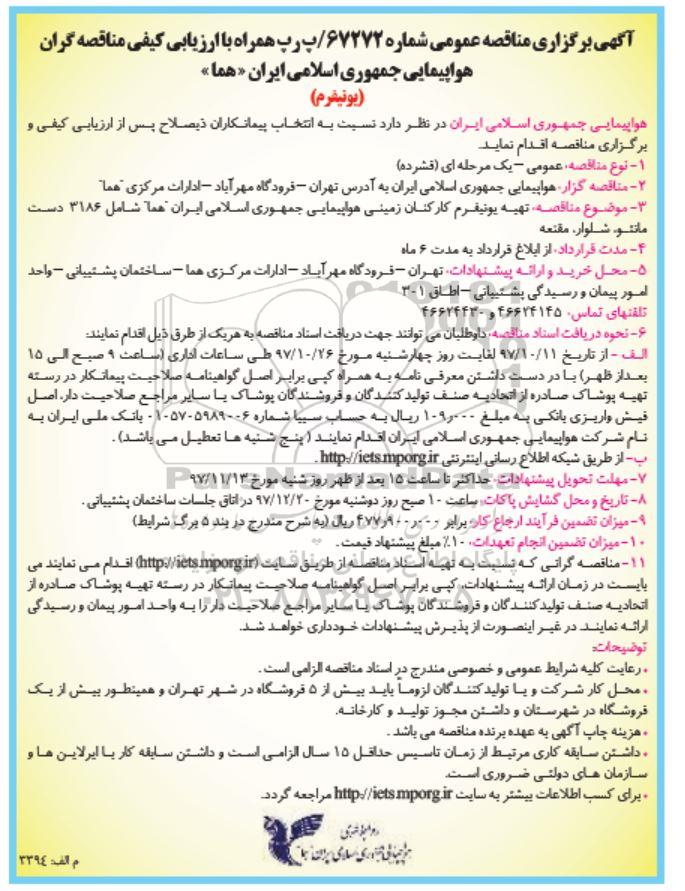 آگهی برگزاری مناقصه عمومی شماره ۶۷۲۷۲/پ رپ همراه با ارزیابی کیفی مناقصه گران
هواپیمایی جمهوری اسلامی ایران «هما»
(یونیفرم)
هواپیمایی جمهوری اسلامی ایران در نظر دارد نسبت به انتخاب پیمانکاران ذیصلاح پس از ارزیابی کیفی و
برگزاری مناقصه اقدام نماید.
۱- نوع مناقصه: عمومی – یک مرحله ای (فشرده)
۲- مناقصه گزار: هواپیمایی جمهوری اسلامی ایران به آدرس تهران – فرودگاه مهرآباد – ادارات مرکزی "هما"
۳- موضوع مناقصه: تهیه یونیفرم کارکنان زمینی هواپیمایی جمهوری اسلامی ایران "هما" شامل ۳۱۸۶ دست
مانتو، شلوار، مقنعه
۴- مدت قرارداد: از ابلاغ قرارداد به مدت ۶ ماه
۵- محل خرید و ارائه پیشنهادات: تهران – فرودگاه مهرآباد – ادارات مرکزی هما – ساختمان پشتیبانی – واحد
امور پیمان و رسیدگی پشتیبانی – اطاق ۳۰۱
تلفنهای تماس: ۴۶۶۲۴۱۴۵ و ۴۶۶۲۴۴۳۰
۶- نحوه دریافت اسناد مناقصه: داوطلبان می توانند جهت دریافت اسناد مناقصه به هریک از طرق ذیل اقدام نمایند:
الف - از تاریخ ۹۷/۱۰/۱۱ لغایت روز چهارشنبه مورخ ۹۷/۱۰/۲۶ طی ساعات اداری (ساعت ۹ صبح الی ۱۵
بعداز ظهر) با در دست داشتن معرفی نامه به همراه کپی برابر اصل گواهینامه صلاحیت پیمانکار در رسته
تهیه پوشاک صادره از اتحادیه صنف تولیدکنندگان و فروشندگان پوشاک یا سایر مراجع صلاحیت دار، اصل
فیش واریزی بانکی به مبلغ ۱۰۹٫۰۰۰ ریال به حساب سیبا شماره ۰۱۰۵۷۰۵۹۸۹۰۰۶ بانک ملی ایران به
نام شرکت هواپیمایی جمهوری اسلامی ایران اقدام نمایند ( پنج شنبه ها تعطیل می باشد) .
ب- از طریق شبکه اطلاع رسانی اینترنتی http://iets.mporg.ir .
۷- مهلت تحویل پیشنهادات: حداکثر تا ساعت ۱۵ بعد از ظهر روز شنبه مورخ ۹۷/۱۱/۱۳
۸- تاریخ و محل گشایش پاکات: ساعت ۱۰ صبح روز دوشنبه مورخ ۹۷/۱۲/۲۰ در اتاق جلسات ساختمان پشتیبانی .
۹- میزان تضمین فرآیند ارجاع کار: برابر ۴۷۷٫۹۰۰٫۰۰۰ ریال (به شرح مندرج در بند ۵ برگ شرایط)
۱۰- میزان تضمین انجام تعهدات: ۱۰٪ مبلغ پیشنهاد قیمت .
۱۱- مناقصه گرانی که نسبت به تهیه اسناد مناقصه از طریق سایت (http://iets.mporg.ir) اقدام می نمایند می
بایست در زمان ارائه پیشنهادات، کپی برابر اصل گواهینامه صلاحیت پیمانکار در رسته تهیه پوشاک صادره از
اتحادیه صنف تولیدکنندگان و فروشندگان پوشاک یا سایر مراجع صلاحیت دار را به واحد امور پیمان و رسیدگی
ارائه نمایند. در غیر اینصورت از پذیرش پیشنهادات خودداری خواهد شد.
توضیحات:
• رعایت کلیه شرایط عمومی و خصوصی مندرج در اسناد مناقصه الزامی است .
• محل کار شرکت و یا تولیدکنندگان لزوماً باید بیش از ۵ فروشگاه در شهر تهران و همینطور بیش از یک
فروشگاه در شهرستان و داشتن مجوز تولید و کارخانه.
• هزینه چاپ آگهی به عهده برنده مناقصه می باشد .
• داشتن سابقه کاری مرتبط از زمان تاسیس حداقل ۱۵ سال الزامی است و داشتن سابقه کار با ایرلاین ها و
سازمان های دولتی ضروری است.
• برای کسب اطلاعات بیشتر به سایت http://iets.mporg.ir مراجعه گردد.
روابط عمومی
هواپیمائی جمهوری اسلامی ایران "هما"
م الف: ۳۳۹۴